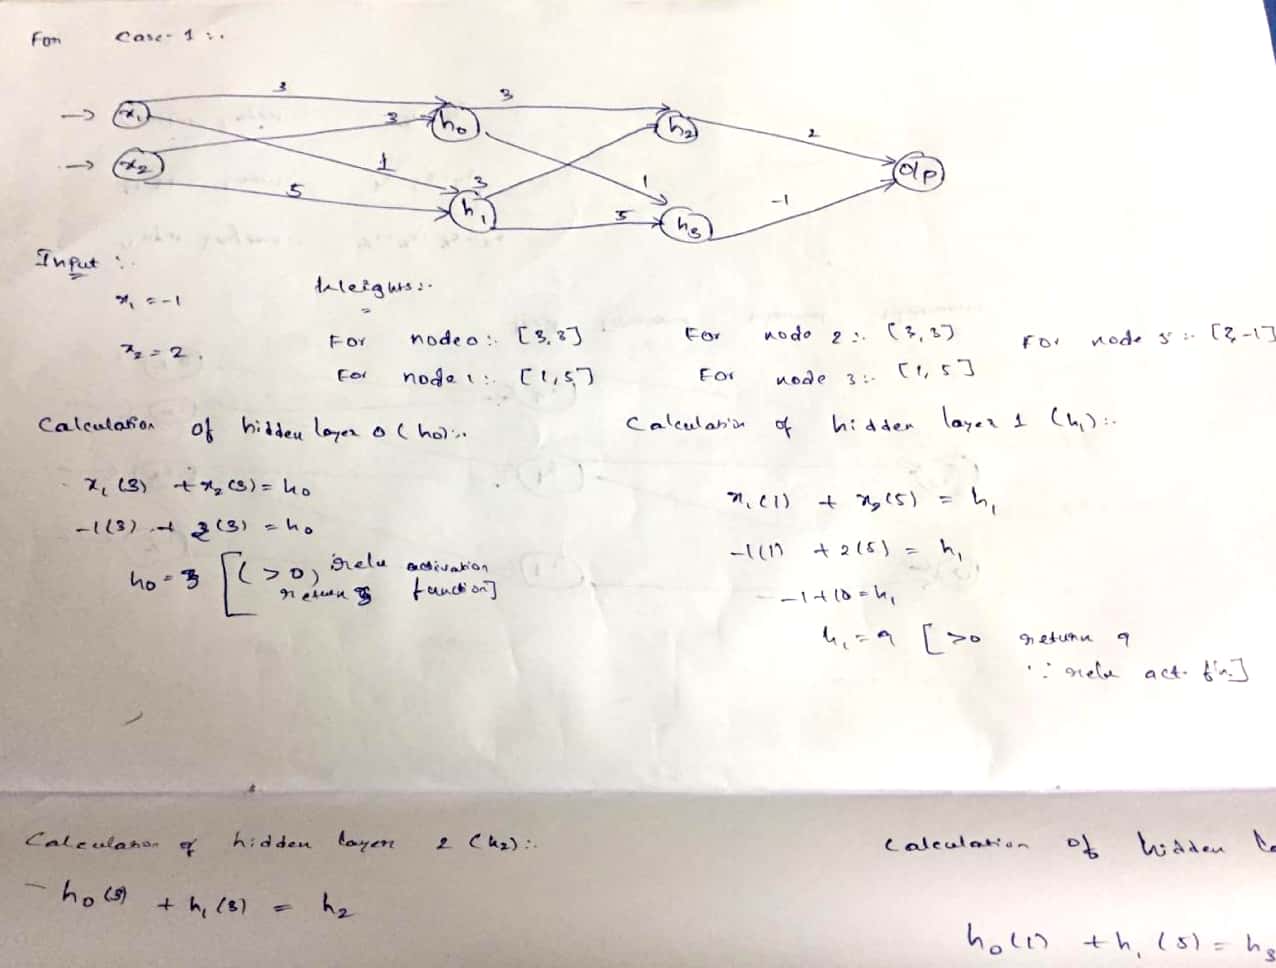 For Case-1 :.
3 3
x₁ 3 h₀ h₂ 2
x₂ 1 3 1 o/p
5 h₁ 5 h₃ -1
Input :.
x₁ = -1
x₂ = 2.
Weights:.
For node 0:. [3, 3]
For node 1:. [1, 5]
For node 2:. [3, 3]
For node 3:. [1, 5]
For node 5:. [2, -1]
Calculation of hidden layer 0 (h₀):.
x₁(3) + x₂(3) = h₀
-1(3) + 2(3) = h₀
h₀ = 3 [(>0), relu activation
return 3 function]
Calculation of hidden layer 1 (h₁):.
x₁(1) + x₂(5) = h₁
-1(1) + 2(5) = h₁
-1+10 = h₁
h₁ = 9 [>0 return 9
∵ relu act. fn.]
Calculation of hidden layer 2 (h₂):.
h₀(3) + h₁(3) = h₂
Calculation of hidden
h₀(1) + h₁(5) = h₃